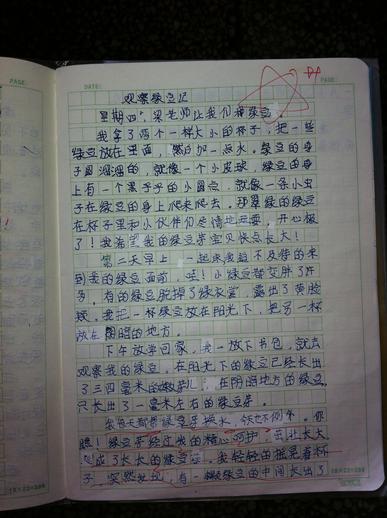 PAGE:
DATE:
PAGE:
观察绿豆记
星期四,梁老师让我们种绿豆。
我拿了两个一样大小的杯子,把一些
绿豆放在里面,然后加一点水。绿豆的身
子圆溜溜的,就像一个小皮球,绿豆的身
上有一个黑乎乎的小圆点,就像一条小虫
子在绿豆的身上爬来爬去。那翠绿的绿豆
在杯子里和小伙伴们尽情地玩耍,开心极
了!我希望我的绿豆芽宝贝快点长大!
第二天早上,一起床我迫不及待的来
到我的绿豆面前,哇!小绿豆都变胖了许
多。有的绿豆脱掉了绿衣裳,露出了黄脸
颊。我把一杯绿豆放在阳光下,把另一杯
放在阴暗的地方。
下午放学回家,我一放下书包,就去
观察我的绿豆,在阳光下的绿豆已经长出
了三四毫米的嫩芽儿,在阴暗地方的绿豆
只长出了一毫米左右的绿豆芽。
我每天都给绿豆芽换水,今天也不例外。你
瞧!绿豆芽经过我的精心呵护,茁壮长大
变成了长长的绿豆芽。我轻轻的摇晃着杯
子,突然发现,有一颗绿豆的中间长出了